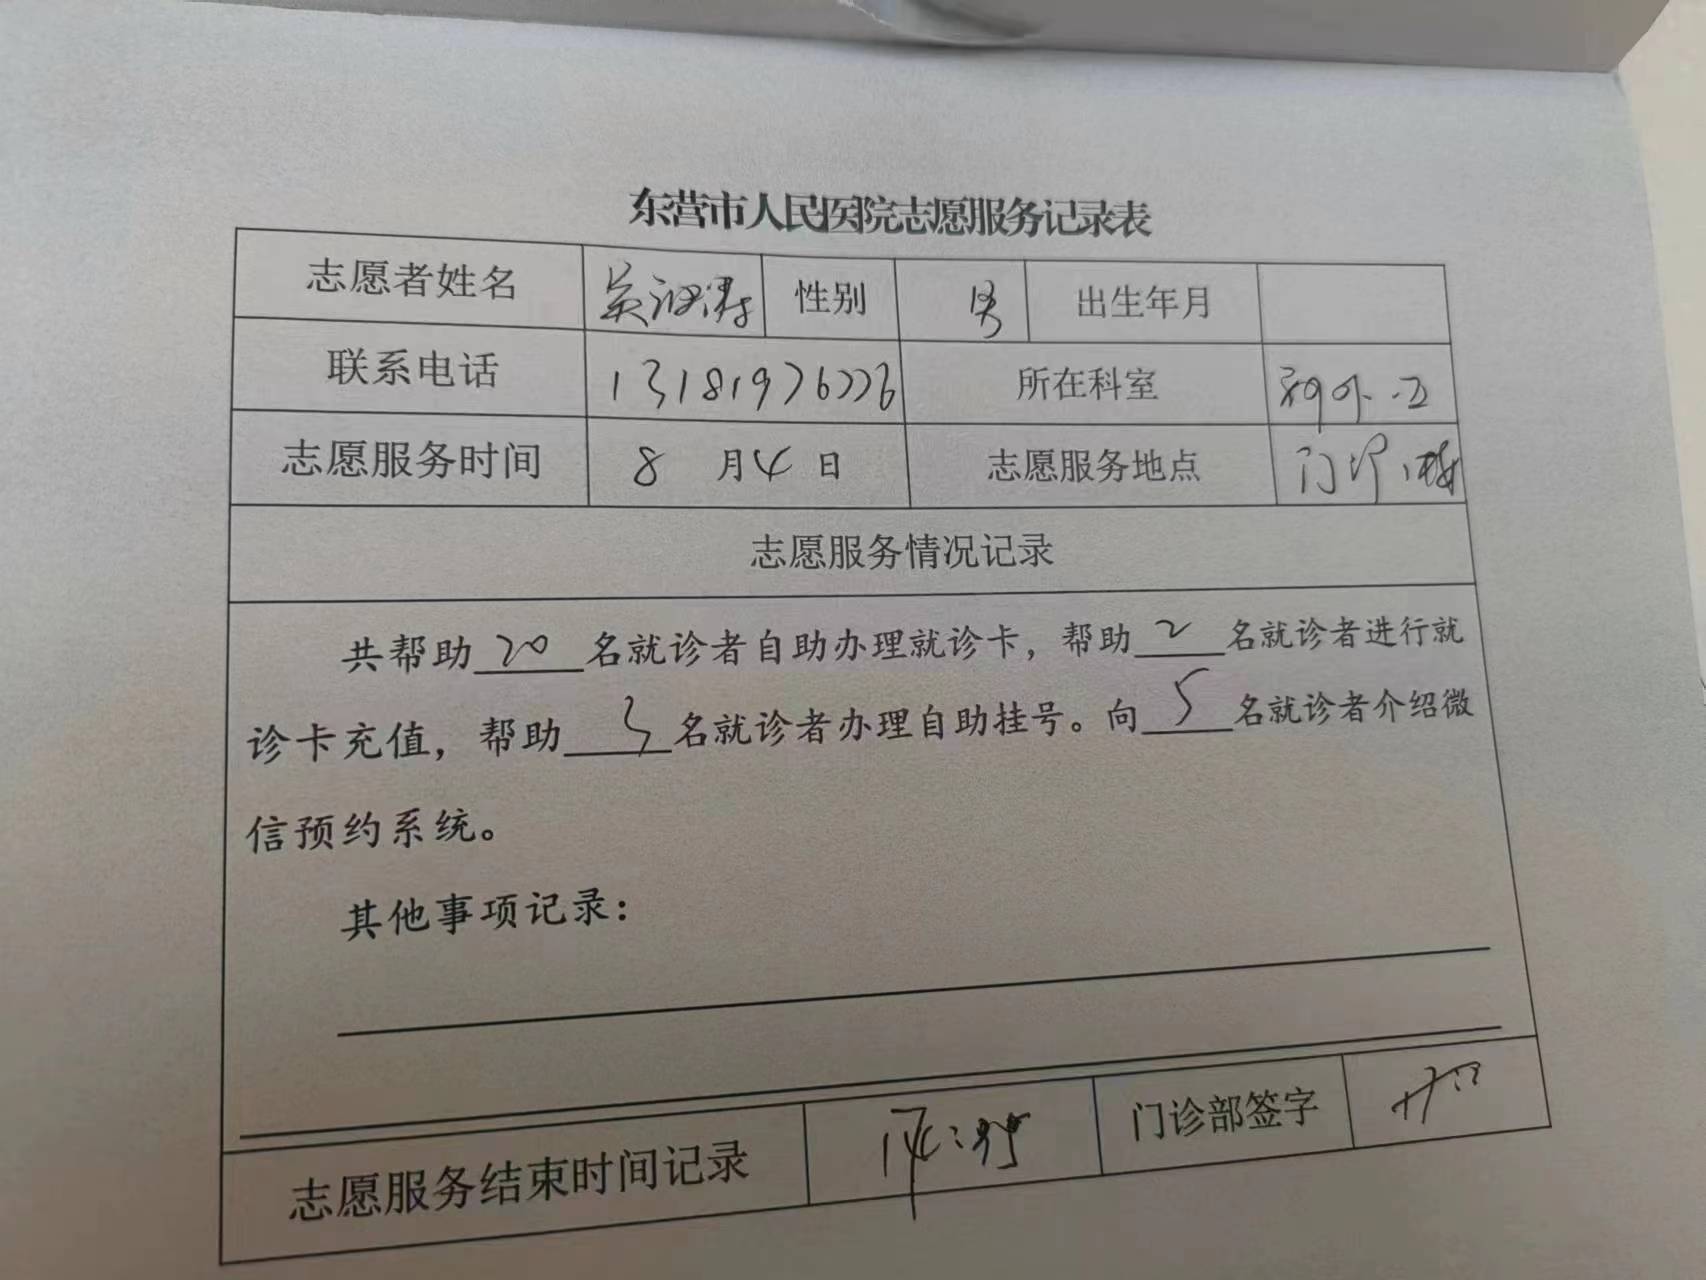 东营市人民医院志愿服务记录表
志愿者姓名 吴 性别 男 出生年月
联系电话 13181976226 所在科室
志愿服务时间 8月4日 志愿服务地点 门诊楼
志愿服务情况记录
共帮助20名就诊者自助办理就诊卡，帮助2名就诊者进行就
诊卡充值，帮助3名就诊者办理自助挂号。向5名就诊者介绍微
信预约系统。
其他事项记录：
志愿服务结束时间记录 门诊部签字